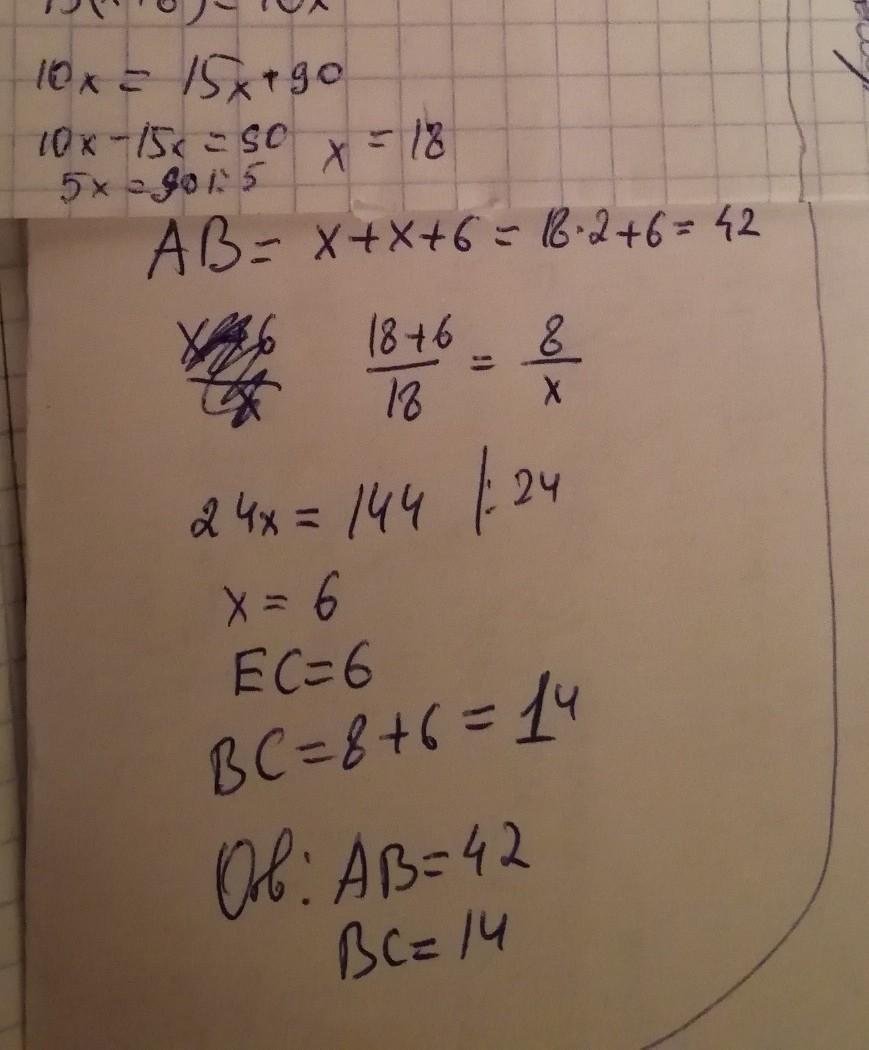 10x = 15x+90
10x-15x = 90 x = 18
5x = 90 |: 5
AB = x+x+6 = 18·2+6 = 42
18+6/18 = 8/x
24x = 144 |: 24
x = 6
EC=6
BC=8+6 = 14
Ов: AB=42
BC=14